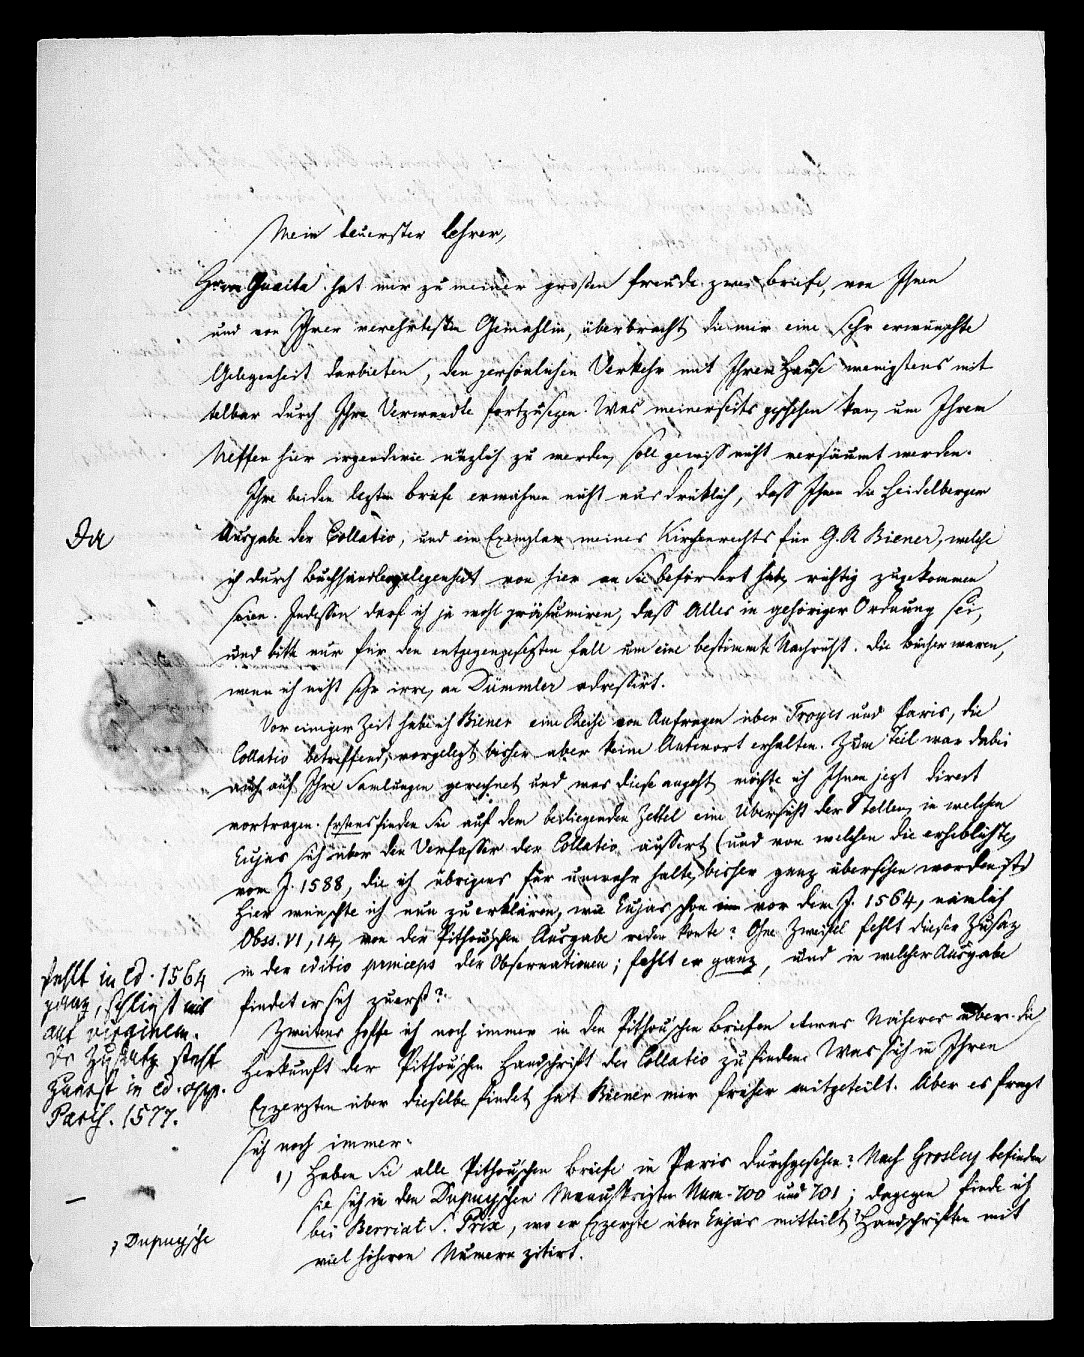 Mein teuerster Lehrer,
Herr Guaita hat mir zu meiner grosten Freude zwei Briefe, von Ihnen
und von Ihrer verehrtesten Gemahlin, überbracht, die mir eine sehr erwünschte
Gelegenheit darbieten, den persönlichen Verkehr mit Ihrem Hause wenigstens mit
telbar durch Ihre Verwandte fortzusezen. Was meinerseits geschehen kan, um Ihrem
Neffen hier irgendwie nüzlich zu werden, soll gewiss nicht versäumt werden.
Ihre beiden lezten Briefe erwähnen nicht ausdrüklich, dass Ihnen die Heidelberger
Ausgabe der Collatio, und ein Exemplar meines Kirchenrechts für G.R. Biener, welche
ich durch Buchhändlergelegenheit von hier an Sie befördert habe, richtig zugekommen
seien. Indessen darf ich ja wohl präsumiren, dass Alles in gehöriger Ordnung sei,
und bitte nur für den entgegengesezten Fall um eine bestimmte Nachricht. Die Bücher waren,
wenn ich nicht sehr irre, an Dümmler adressirt.
Vor einiger Zeit habe ich Biener eine Reihe von Anfragen über Troyes und Paris, die
Collatio betreffend, vorgelegt, bisher aber keine Antwort erhalten. Zum Teil war dabei
auch auf Ihre Samlungen gerechnet und was diese angeht, möchte ich Ihnen jezt direct
vortragen. Erstens finden Sie auf dem beiliegenden Zettel eine Übersicht der Stellen, in welchen
Cujas sich über den Verfasser der Collatio äussert (und von welchen die erheblichste,
vom J. 1588, die ich übrigens für unwahr halte, bisher ganz übersehen worden ist)
Hier wünschte ich nun zu erklären, wie Cujas schon vor dem J. 1564, nämlich
Obss. VI, 14, von der Pithouschen Ausgabe reden konte? Ohne Zweifel fehlt dieser Zusaz
in der editio princeps der Observationen; fehlt er ganz, und in welcher Ausgabe
findet er sich zuerst?
Zweitens hoffe ich noch immer in den Pithouschen Briefen etwas Näheres über die
Herkunft der Pithouschen Handschrift der Collatio zu finden. Was sich in Ihren
Exzerpten über dieselbe findet, hat Biener mir früher mitgeteilt. Aber es fragt
sich noch immer:
1) Haben Sie alle Pithouschen Briefe in Paris durchgesehen? Nach Grosley befinden
sie sich in den Dupuyschen Manuskripten Num. 700 und 701; dagegen finde ich
bei Berriat S. Prix, wo er Exzerpte über Cujas mitteilt, Handschriften mit
viel höheren Numern zitirt.
fehlt in Ed. 1564
ganz, schliest mit
auf
Der Zusatz steht
zuerst in Ed. opp.
Paris. 1577.
Dupuysche